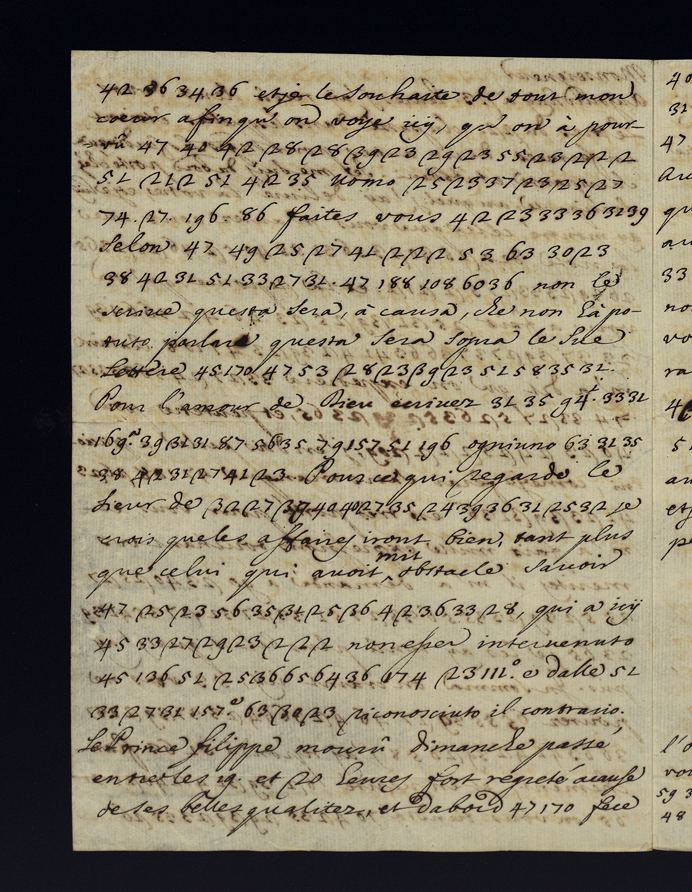 42 36 34 36 et je le souhaite de tout mon
coeur afin qu'on voye icy, qu'on à pour-
vû 47 40 42 28 28 39 23 29 23 55 23 22 2
51 21 2 51 42 35 uomo 25 23 37 23 25 27
74. 27. 196. 86 faites vous 42 23 33 36 31 39
selon 47 49 25 27 41 22 2 53 63 30 23
38 42 31 51 33 27 31. 47 188 108 60 36 non le
scrive questa sera, à causa, che non hà po-
tuto parlare questa sera sopra le sue
lettere 45 170 47 53 28 23 39 23 51 58 35 31.
Pour l'amour de Dieu ecrivez 31 35 94. 33 31
169. 39 31 31 87 56 35 79 157 51 196 ogniuno 63 31 35
38 42 31 27 41 23 Pour ce qui regarde le
sieur de 32 27 37 40 40 27 35 24 39 36 31 25 32 je
crois que les affaires iront bien, tant plus
que celui qui avoit mit obstacle savoir
47 25 23 56 35 31 25 36 42 36 33 28, qui a icy
45 33 27 29 23 22 2 non esser intervenuto
45 136 51 25 36 65 64 36 174 23 111.º e dalle 51
33 27 31 157.º 63 30 23 riconosciuto il contrario.
Le Prince filippe mourû dimanche passé
entre les 19. et 20 heures fort regreté acause
de ses belles qualitez, et d'abord 47 170 fece